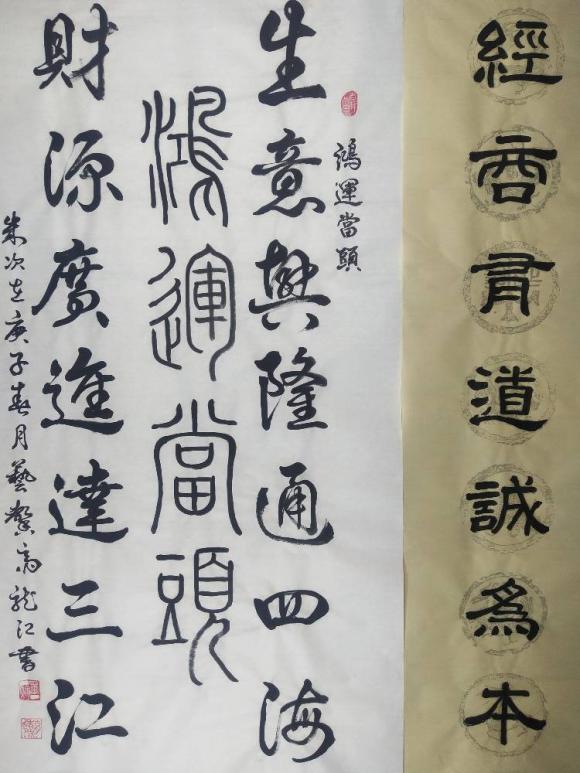 經商有道誠爲本
鴻運當頭
生意興隆通四海
鴻運當頭
財源廣進達三江
歲次在庚子春月藝馨高龍江書